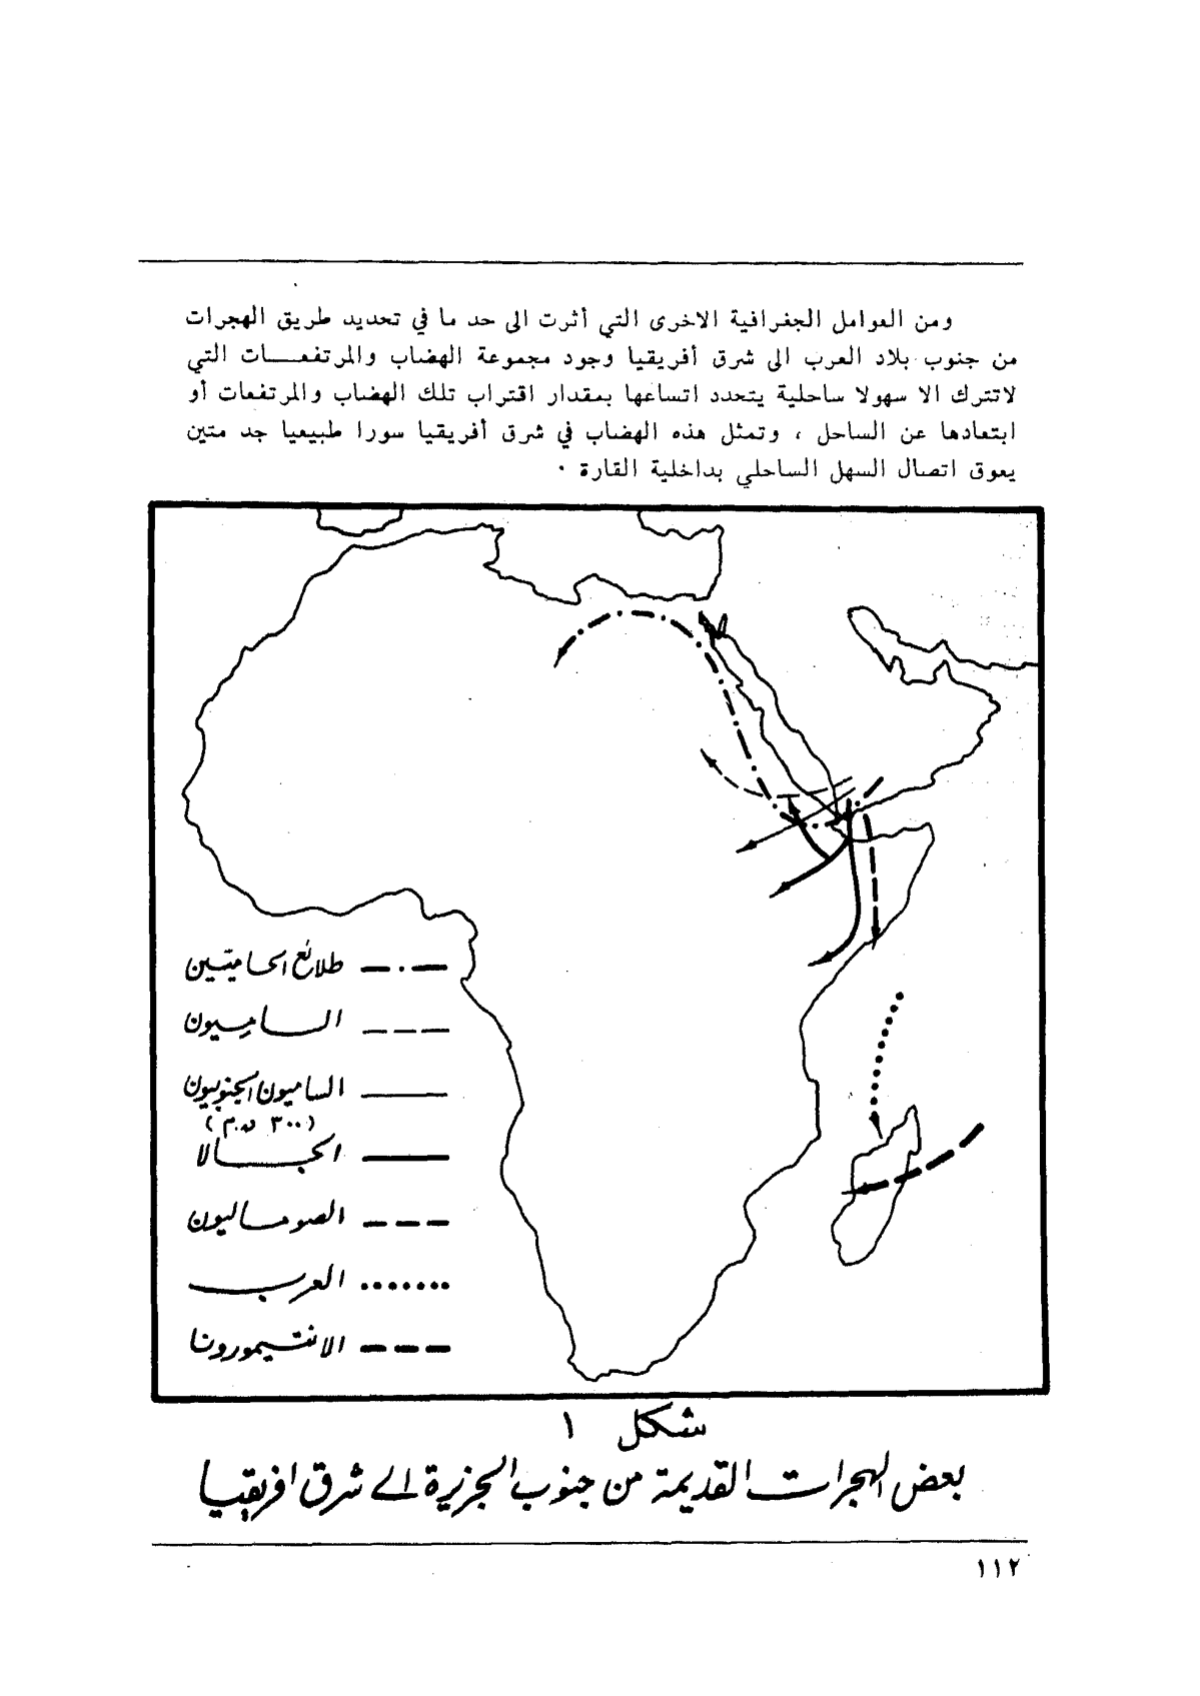 ومن العوامل الجغرافية الاخرى التي أثرت الى حد ما في تحديد طريق الهجرات
من جنوب بلاد العرب الى شرق أفريقيا وجود مجموعة الهضاب والمرتفعـــات التي
لاتترك الا سهولا ساحلية يتحدد اتساعها بمقدار اقتراب تلك الهضاب والمرتفعات أو
ابتعادها عن الساحل ، وتمثل هذه الهضاب في شرق أفريقيا سورا طبيعيا جد متين
يعوق اتصال السهل الساحلي بداخلية القارة ٠
طلائع الحاميّين
الساميون
الساميون الجنوبيون
(٣٠٠ ق.م)
الجالا
الصوماليون
العرب
الانتيمورونا
شكل ١
بعض الهجرات القديمة من جنوب الجزيرة الى شرق افريقيا
١١٢